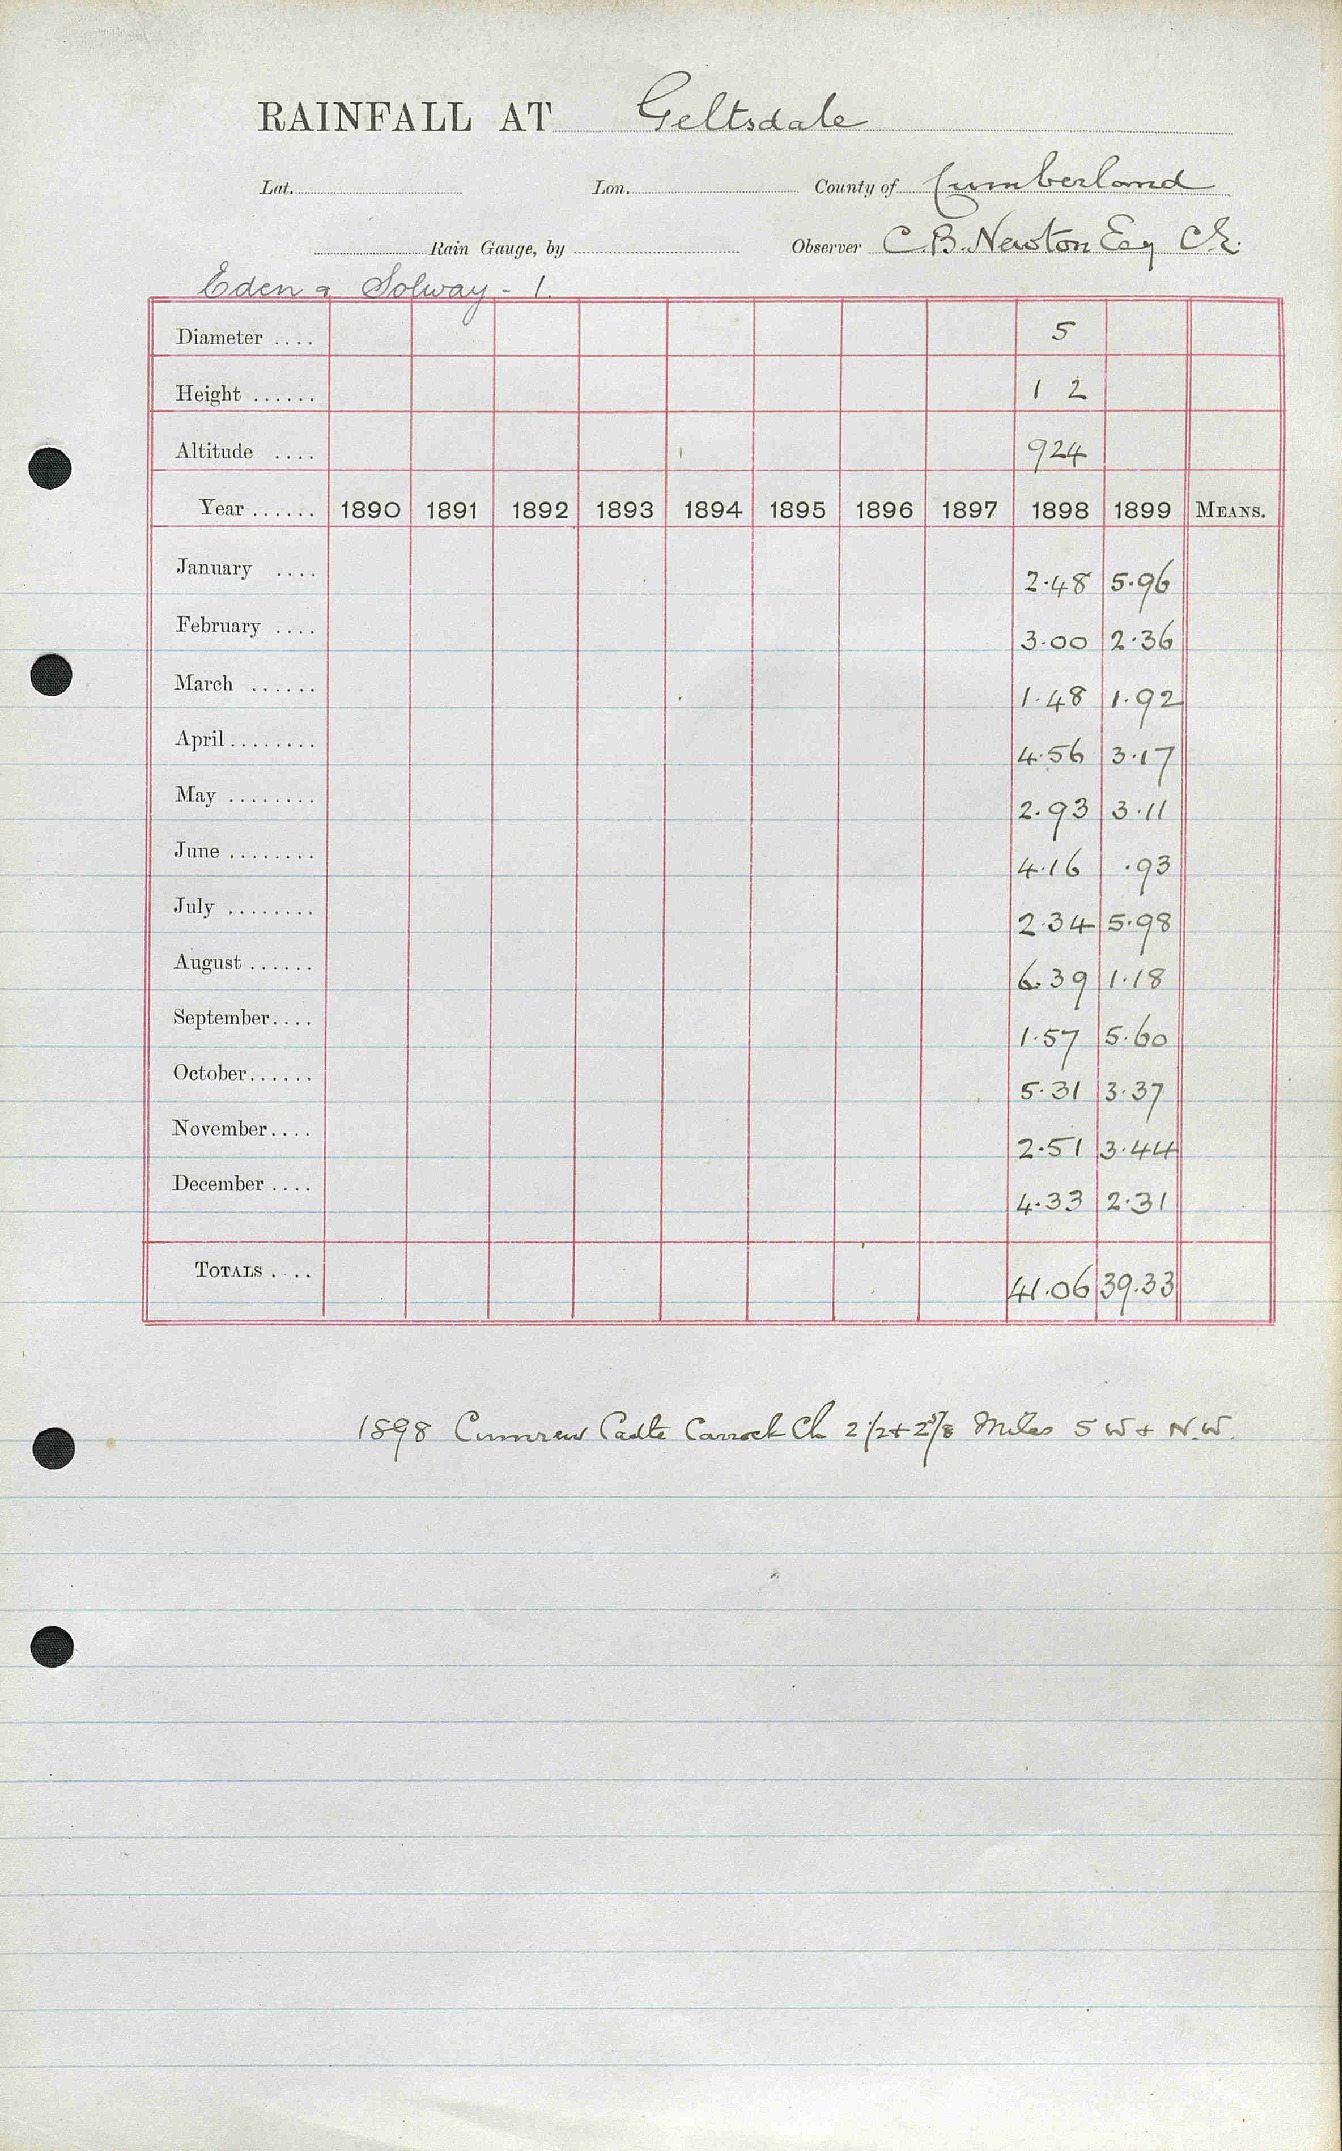 RAINFALL AT Geltsdale
Lat. Lon. County of Cumberland
Rain Gauge, by Observer C.B. Newton Esq CE.
Eden & Solway - 1.
Diameter .... 5
Height ...... 1 2
Altitude .... 924
Year ...... 1890 1891 1892 1893 1894 1895 1896 1897 1898 1899 MEANS.
January .... 2.48 5.96
February .... 3.00 2.36
March ...... 1.48 1.92
April ........ 4.56 3.17
May ........ 2.93 3.11
June ........ 4.16 .93
July ........ 2.34 5.98
August ...... 6.39 1.18
September.... 1.57 5.60
October...... 5.31 3.37
November.... 2.51 3.44
December .... 4.33 2.31
TOTALS .... 41.06 39.33
1898 Cumrew Castle Carrock Ch 2 1/2 + 2 5/8 Miles SW + N.W.